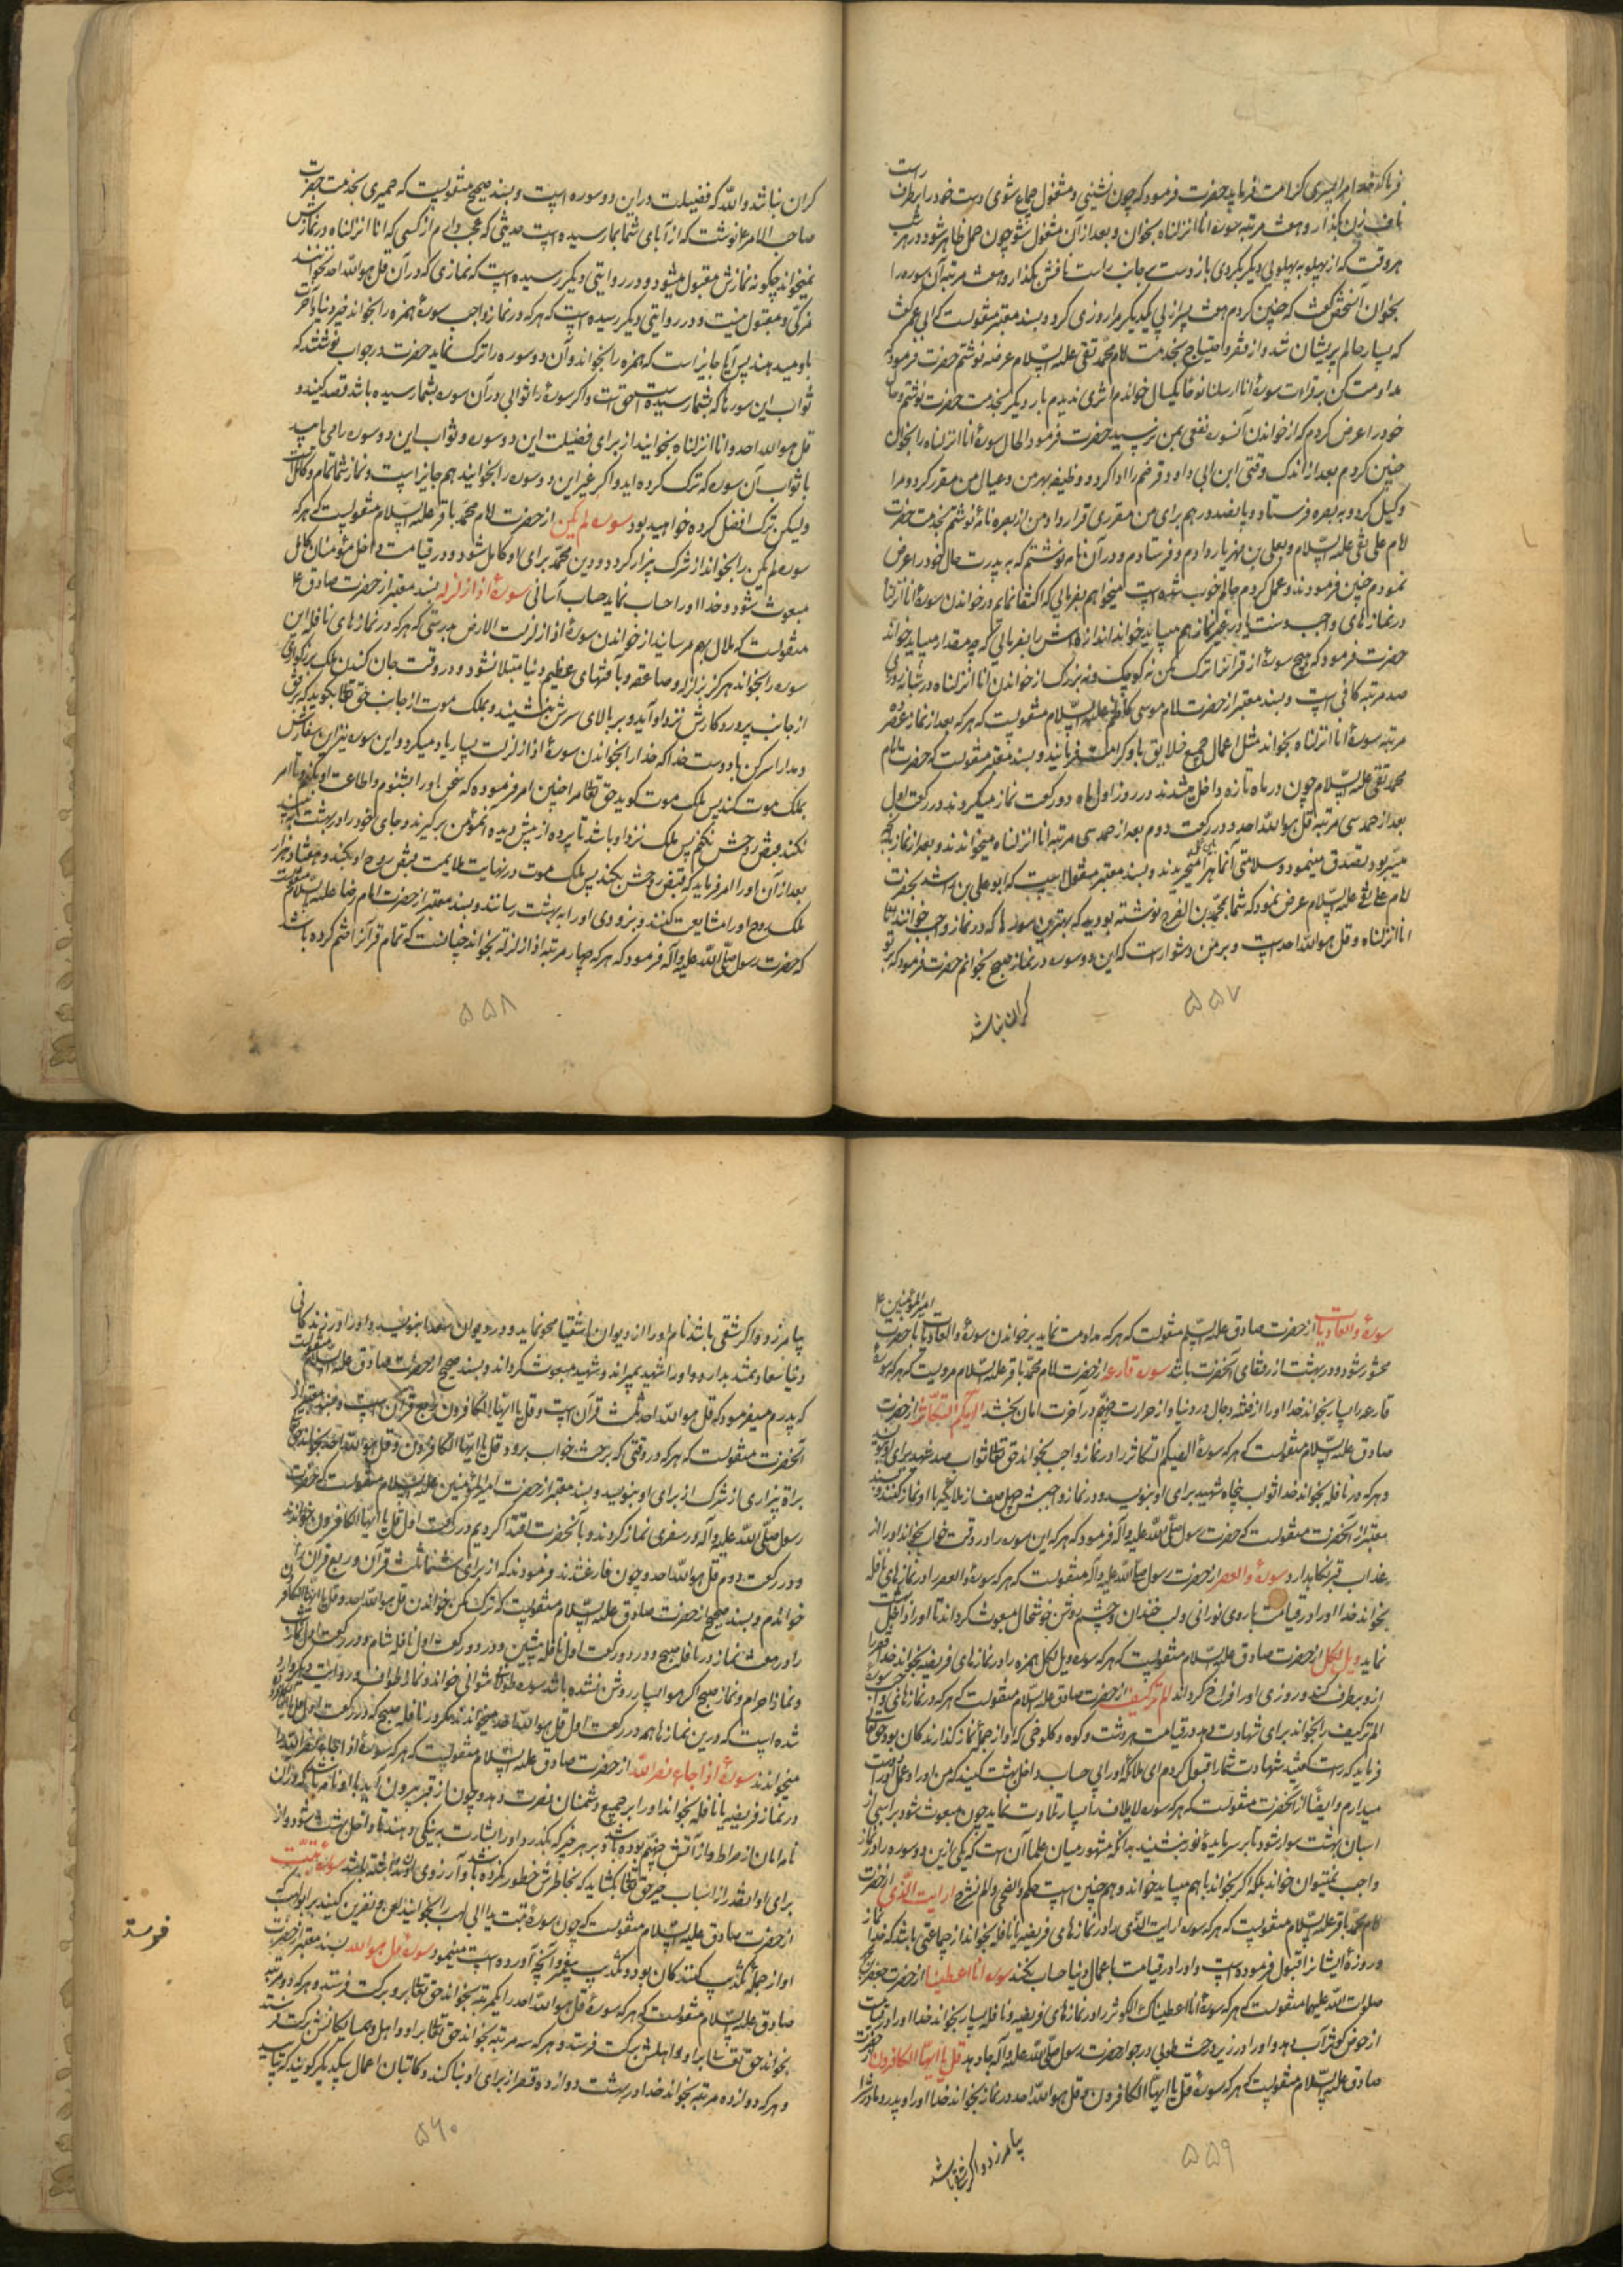 فرما که خدا مرا پسری کرامت فرماید حضرت فرمود که چون نشینی و مشغول جماع شوی دست خود را بر طرف راست
ناف زن بگذار و هفت مرتبه سوره انا انزلناه بخوان و بعد از آن مشغول شو چون حمل ظاهر شود در هر شب
هر وقت که از پهلو به پهلوی دیگر بگردی باز دست بجانب راست نافش بگذار و هفت مرتبه آن سوره را
بخوان آنشخص گفت که چنین کردم هفت پسر از پی یکدیگر مرا روزی کرد و بسند معتبر منقولست که ابی عمر گفت
که بسیار حالم پریشان شد و از فقر و احتیاج بخدمت امام محمد تقی علیه السلام عرضه نوشتم حضرت فرمود که
مداومت کن بر قرائت سورهٔ انا ارسلنا نوحا یکسال خواندم اثری ندیدم بار دیگر بخدمت حضرت نوشتم و حال
خود را عرض کردم که از خواندن آنسوره نفعی بمن نرسید حضرت فرمود الحال سورهٔ انا انزلناه را بخوان
چنین کردم بعد از اندک وقتی ابن ابی داود قرضم را ادا کرد و وظیفه بهر من و عیال من مقرر کرد و مرا
وکیل کرد و به بصره فرستاد و پانصد درهم برای من مقرری قرار داد من از بصره نامه نوشتم بخدمت حضرت
امام علی نقی علیه السلام و بعلی بن مهزیار دادم و فرستادم و در آن نامه نوشتم که به پدرت حال خود را عرض
نمودم چنین فرمودند و عمل کردم حالم خوب شده است میخواهم بفرمائی که اکتفا نمایم در خواندن سورهٔ انا انزلناه
در نمازهای واجب و سنت یا در غیر نماز هم میباید خواند اندازه اش را بفرمائی که چه مقدار میباید خواند
حضرت فرمود که هیچ سوره‌ٔ از قرآنرا ترک مکن نه کوچک و نه بزرگ از خواندن انا انزلناه در شبانه روزی
صد مرتبه کافی است و بسند معتبر از حضرت امام موسی کاظم علیه السلام منقولست که هر که بعد از نماز عصر ده
مرتبه سورهٔ انا انزلناه بخواند مثل عمال جمیع خلایق باو کرامت فرمایند و بسند معتبر منقولست که حضرت امام
محمد تقی علیه السلام چون در ماه تازه داخل میشدند در روز اول ماه دو رکعت نماز میکردند در رکعت اول
بعد از حمد سی مرتبه قل هو الله احد و در رکعت دوم بعد از حمد سی مرتبه انا انزلناه میخواندند و بعد از نماز بآنچه
میسر بود تصدق مینمود و سلامتی آنماه را میخریدند و بسند معتبر منقول است که ابو علی بن راشد بحضرت
امام علی نقی علیه السلام عرض نمود که شما بمحمد بن الفرج نوشته بودید که بهترین سوره ها که در نماز واجب خوانند
انا انزلناه و قل هو الله احد است و بر من دشوار است که این دو سوره در نماز صبح بخوانم حضرت فرمود که بر تو
گران نباشد
۵۵۷
گران نباشد والله که فضیلت در این دو سوره است و بسند صحیح منقولست که حمیری بخدمت حضرت
صاحب الامر ع نوشت که از آبای شما بما رسیده است حدیثی که عجب دارم از کسی که انا انزلناه در نمازش
نمیخواند چگونه نمازش مقبول میشود و در روایتی دیگر رسیده است که نمازی که در آن قل هو الله احد نخوانند
مزکی و مقبول نیست و در روایتی دیگر رسیده است که هر که در نماز واجب سورهٔ همزه را بخواند خیر دنیا و آخرت
باو میدهند پس آیا جایز است که همزه را بخواند و آن دو سوره را ترک نماید حضرت در جواب نوشتند که
ثواب این سوره ها که بشما رسیده است حق است و اگر سورهٔ را ثوابی در آن سوره بشما رسیده باشد قصد کنید و
قل هو الله احد و انا انزلناه بخوانید از برای فضیلت این دو سوره و ثواب این دو سوره را می یابید
با ثواب آن سوره که ترک کرده اید و اگر غیر این دو سوره را بخوانید هم جایز است و نماز شما تمام و کامل است
ولیکن ترک افضل کرده خواهید بود سوره لم یکن از حضرت امام محمد باقر علیه السلام منقولست که هر که
سوره لم یکن را بخواند از شرک بیزار گردد و دین محمد برای او کامل شود و در قیامت داخل مؤمنان کامل
مبعوث شود و خدا او را حساب نماید حساب آسانی سورهٔ اذا زلزله بسند معتبر از حضرت صادق ع
منقولست که ملال بهم مرسانید از خواندن سورهٔ اذا زلزلت الارض بدرستی که هر که در نمازهای نافله این
سوره را بخواند هرگز بزلزله و صاعقه و بآفتهای عظیم دنیا مبتلا نشود و در وقت جان کندن ملک بزرگواری
از جانب پروردگارش نزد او آید و بر بالای سرش بنشیند و بملک موت از جانب حق تعالی بگوید که رفق
و مدارا کن با دوست خدا که خدا را بخواندن سورهٔ اذا زلزلت بسیار یاد میکرد و این سوره نیز این سفارش
بملک موت کند پس ملک موت گوید حق تعالی مرا چنین امر فرموده که سخن او را بشنوم و اطاعت او بکنم و تا امر
نکند قبض روحش نکنم پس ملک نزد او باشد تا پرده از پیش دیده آنمؤمن بر گیرند و جای خود را در بهشت ببیند
بعد از آن او را امر فرماید که قبض روحش بکند پس ملک موت در نهایت ملایمت قبض روح او بکند و هفتاد هزار
ملک روح او را مشایعت کنند و بزودی او را به بهشت رسانند و بسند معتبر از حضرت امام رضا علیه السلام منقولست
که حضرت رسول صلی الله علیه و آله فرمود که هر که چهار مرتبه اذا زلزلة بخواند چنانست که تمام قرآنرا ختم کرده باشد
۵۵۸
سورهٔ والعادیات از حضرت صادق علیه السلام منقولست که هر که مداومت نماید بر خواندن سورهٔ والعادیات با حضرت امیر المؤمنین ع
محشور شود و در بهشت از رفقای آنحضرت باشد سوره قارعه از حضرت امام محمد باقر علیه السلام مرویست که هر که سورهٔ
قارعه را بسیار بخواند خدا او را از فتنه دجال در دنیا و از حرارت جهنم در آخرت امان بخشد الهیکم التکاثر از حضرت
صادق علیه السلام منقولست که هر که سورهٔ الهیکم التکاثر را در نماز واجب بخواند حق تعالی ثواب صد شهید برای او بنویسد
و هر که در نافله بخواند خدا ثواب پنجاه شهید برای او بنویسد و در نماز واجبش چهل صف از ملائکه با او نماز کنند و بسند
معتبر از آنحضرت منقولست که حضرت رسول صلی الله علیه و آله فرمود که هر که این سوره را در وقت خواب بخواند او را از
عذاب قبر نگاه دارد سورهٔ والعصر از حضرت رسول صلی الله علیه و آله منقولست که هر که سورهٔ والعصر را در نمازهای نافله
بخواند خدا او را در قیامت با روی نورانی و لب خندان و چشم روشن خوشحال مبعوث گرداند تا او را داخل بهشت
نماید ویل لکل از حضرت صادق علیه السلام منقولست که هر که سوره ویل لکل همزه را در نمازهای فریضه بخواند خدا فقر را
از او برطرف کند و روزی او را فراخ گرداند الم تر کیف از حضرت صادق علیه السلام منقولست که هر که در نمازهای واجب سوره
الم تر کیف را بخواند برای شهادت دهد در قیامت هر دشت و کوه و کلوخی که او از جملهٔ نماز گذارندگان بود حق تعالی
فرماید که راست گفتید شهادت شما را قبول کردم ای ملائکه او را بی حساب داخل بهشت کنید که من او را و عمل او را دوست
میدارم و ایضا از آنحضرت منقولست که هر که سوره لایلاف را بسیار تلاوت نماید چون مبعوث شود بر اسبی از
اسبان بهشت سوار شود تا بر سر مایدهٔ نور بنشیند بدانکه مشهور میان علما آن است که یکی از این دو سوره را در نماز
واجب نمیتوان خواند بلکه اگر بخواند با هم میباید خواند و هم چنین است حکم والضحی و الم نشرح ارایت الذی از حضرت
امام محمد باقر علیه السلام منقولست که هر که سوره ارایت الذی را در نمازهای فریضه یا نافله بخواند از جماعتی باشد که خدا نماز
و روزهٔ ایشانرا قبول فرموده است و او را در قیامت باعمال دنیا حساب نکند سوره انا اعطینا از حضرت جعفر
صلوات الله علیهما منقولست که هر که سورهٔ انا اعطیناک الکوثر را در نمازهای فریضه و نافله بسیار بخواند خدا او را در قیامت
از حوض کوثر آب دهد و او را در زیر درخت طوبی در جوار حضرت رسول صلی الله علیه و آله جا دهد قل یا ایها الکافرون از حضرت
صادق علیه السلام منقولست که هر که سورهٔ قل یا ایها الکافرون و قل هو الله احد در نماز بخواند خدا او را و پدر و مادر او را
بیامرزد و اگر شقی باشد
۵۵۹
بیامرزد و اگر شقی باشد نام او را از دیوان اشقیا محو نماید و در دیوان سعدا بنویسد و او را در زندگانی
دنیا سعادتمند بدارد و او را شهید بمیراند و شهید مبعوث گرداند و بسند صحیح از حضرت صادق علیه السلام منقولست
که پدرم میفرمود که قل هو الله احد ثلث قرآن است و قل یا ایها الکافرون ربع قرآن است و بسند معتبر از
آنحضرت منقولست که هر که در وقتی که برخت خواب برود قل یا ایها الکافرون و قل هو الله احد بخواند حق تعالی
براة بیزاری از شرک از برای او بنویسد و بسند معتبر از حضرت امیر المؤمنین علیه السلام منقولست که حضرت
رسول صلی الله علیه و آله در سفری نماز کردند و بآنحضرت اقتدا کردیم در رکعت اول قل یا ایها الکافرون خواندند
و در رکعت دوم قل هو الله احد و چون فارغ شدند فرمودند که از برای شما ثلث قرآن و ربع قرآن را
خواندم و بسند صحیح از حضرت صادق علیه السلام منقولست که ترک مکن خواندن قل هو الله احد و قل یا ایها الکافرون
را در هفت نماز در نافله صبح و در دو رکعت اول نافله پیشین و در دو رکعت اول نافله شام و در دو رکعت اول نماز شب
و نماز احرام و نماز صبح اگر هوا بسیار روشن نشده باشد سوره طولانی نتوانی خواند و نماز طواف و در روایت دیگر وارد
شده است که در این نمازها هم در رکعت اول قل هو الله احد میخوانند مگر در نافله صبح که در رکعت اول قل یا ایها الکافرون
میخوانند سورهٔ اذا جاء نصر الله از حضرت صادق علیه السلام منقولست که هر که سورهٔ اذا جاء نصر الله را
در نماز فریضه یا نافله بخواند او را بر جمیع دشمنان نصرت دهد و چون از قبر بیرون آید با او نامه باشد که در آن
نامه امان از صراط و از آتش جهنم بوده باشد و بر هر خیر که بگذرد او را بشارت به نیکی دهند تا داخل بهشت شود و از
برای او آنقدر از اسباب خیر حق تعالی بگشاید که بخاطرش خطور نکرده باشد و آرزوی آن نداشته باشد سورهٔ تبت
از حضرت صادق علیه السلام منقولست که چون سورهٔ تبت یدا ابی لهب را بخوانید لعن و نفرین کنید بر ابو لهب که
او از جمله تکذیب کنندگان بود و تکذیب پیغمبر و آنچه آورده است مینمود سوره قل هو الله بسند معتبر از حضرت
صادق علیه السلام منقولست که هر که سورهٔ قل هو الله احد را یکمرتبه بخواند حق تعالی بر او برکت فرستد و هر که دو مرتبه
بخواند حق تعالی بر او و اهلش برکت فرستد و هر که سه مرتبه بخواند حق تعالی بر او و اهل و همسایگانش برکت فرستد
و هر که دوازده مرتبه بخواند خدا در بهشت دوازده قصر از برای او بنا کند و کاتبان اعمال بیکدیگر گویند که بیائید
۵۶۰